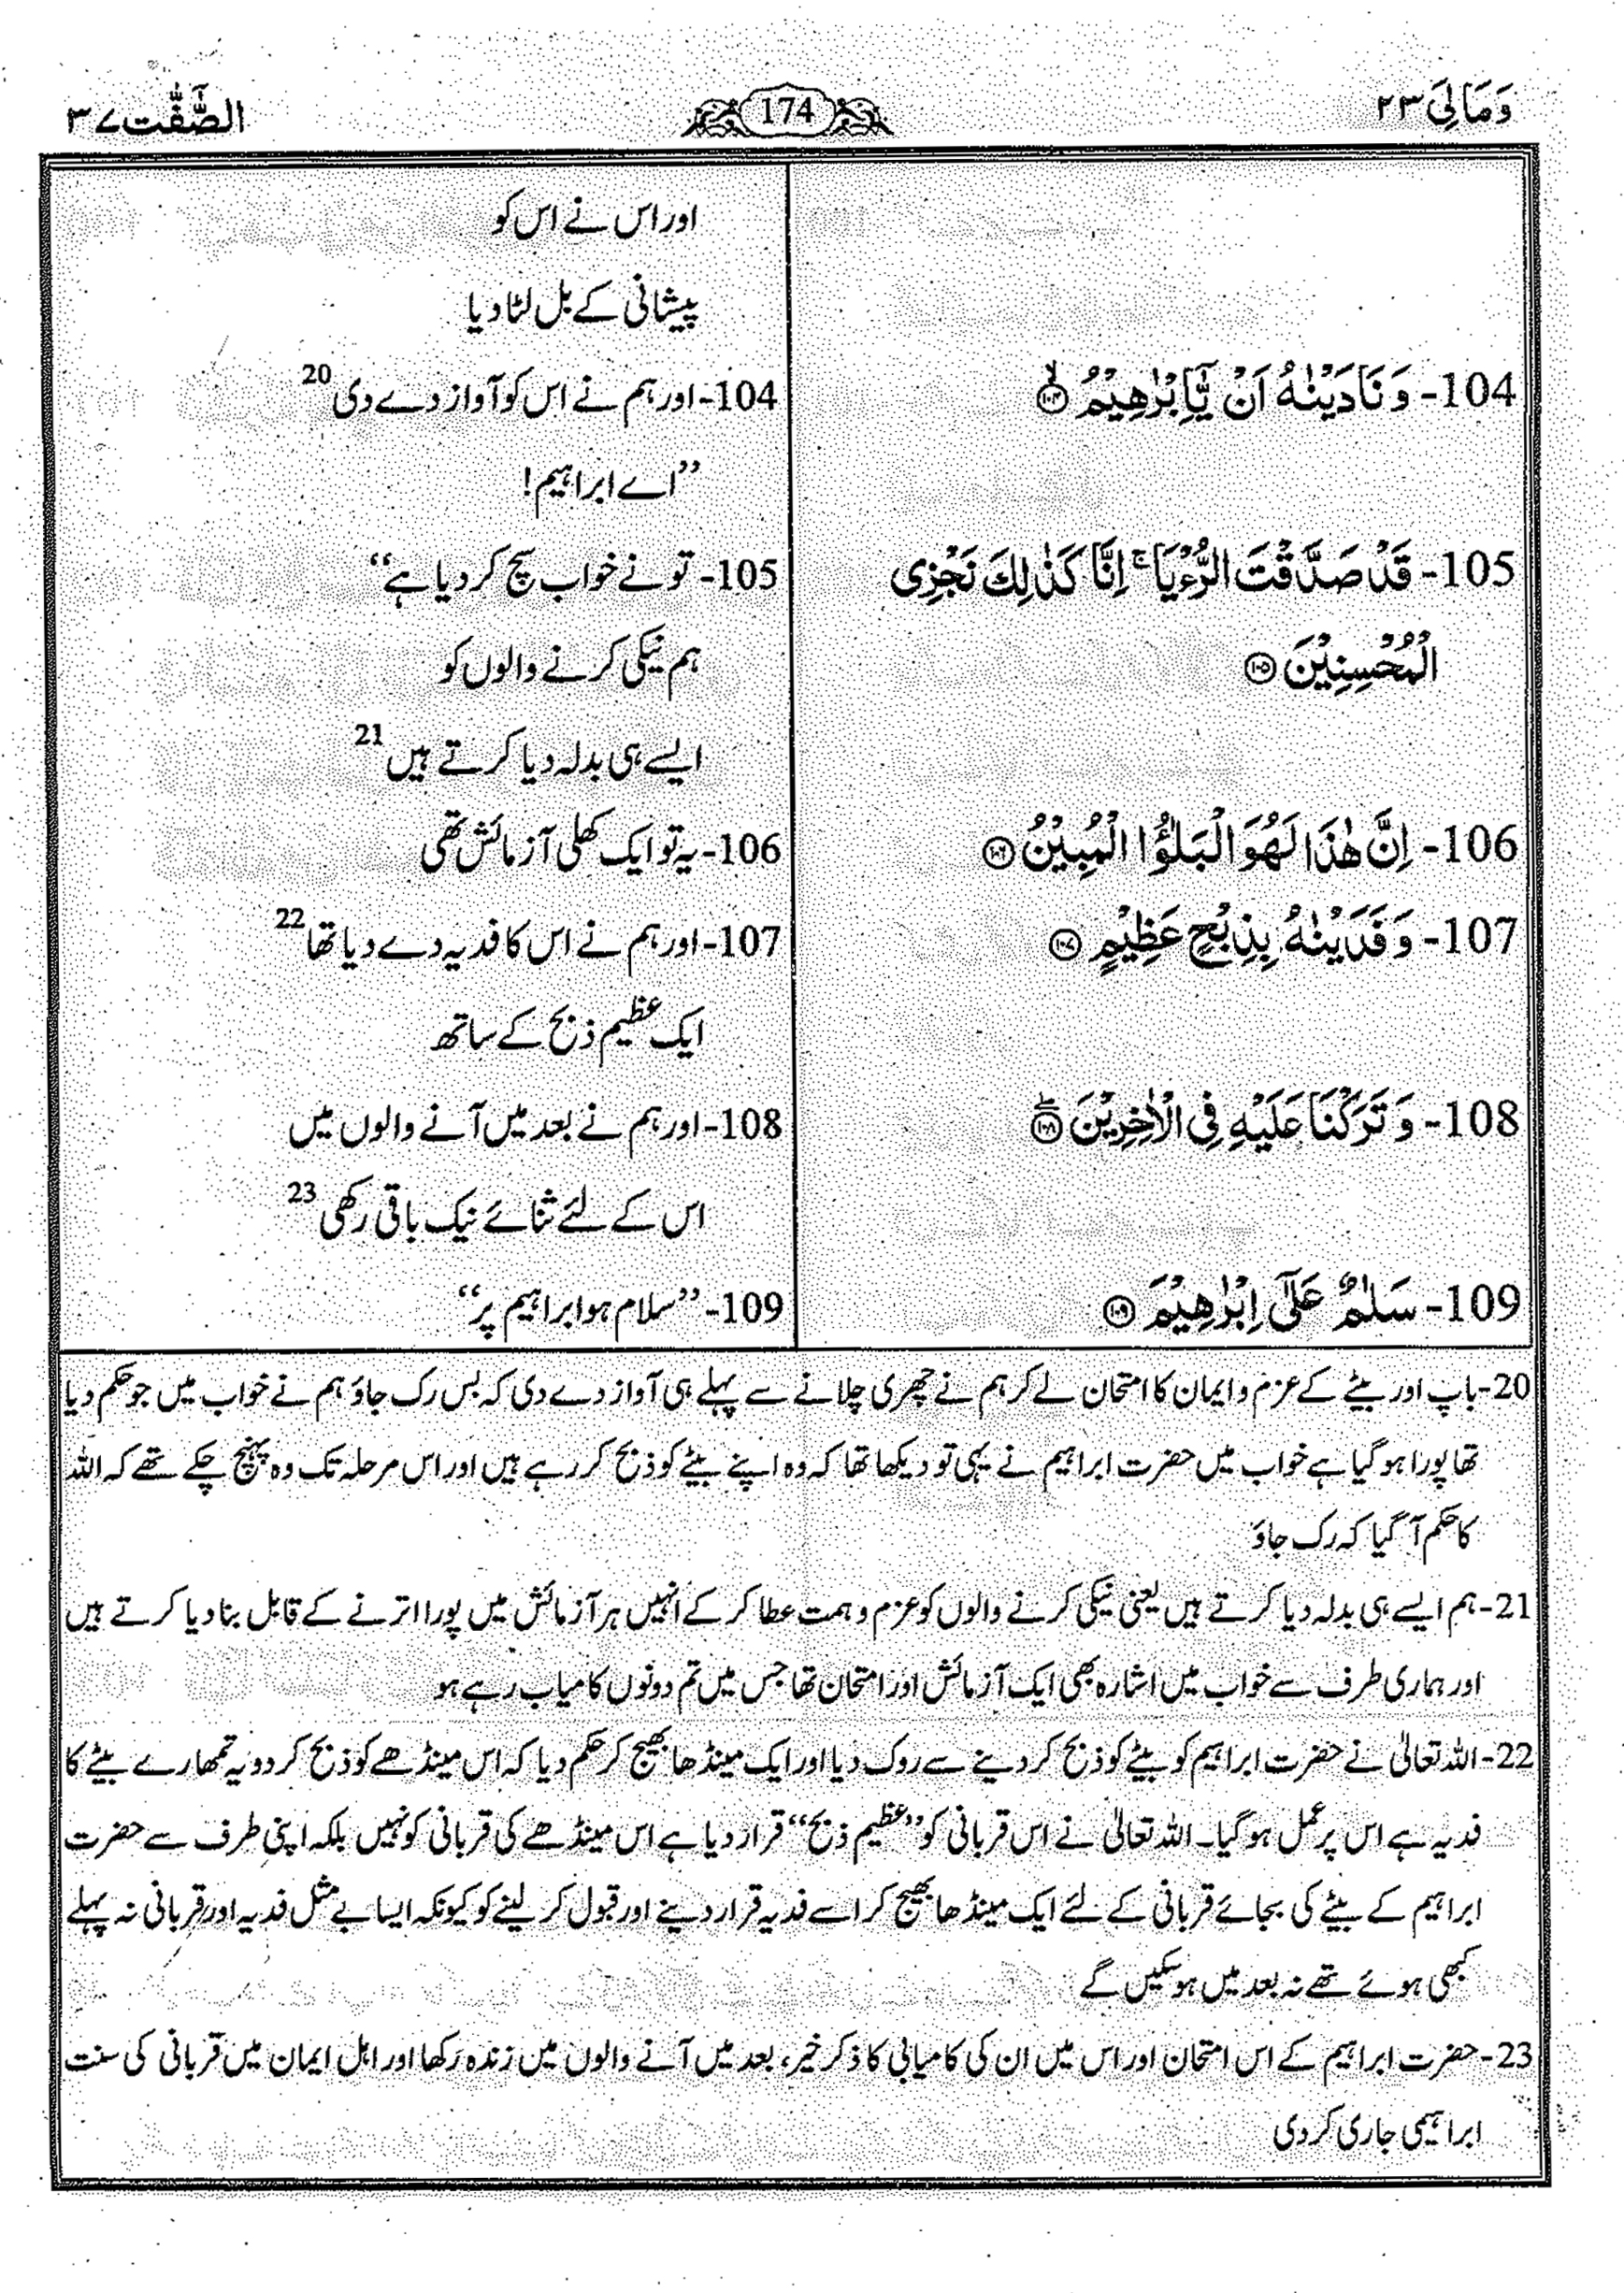 وَمَالِیَ ٢٣
174
الصّٰٓفّٰت ٣٧
اور اس نے اس کو
پیشانی کے بل لٹا دیا
104- وَ نَادَيْنٰهُ اَنْ يّٰٓاِبْرٰهِيْمُ ۙ﴿١٠٤﴾
104- اور ہم نے اس کو آواز دے دی 20
”اے ابراہیم!
105- قَدْ صَدَّقْتَ الرُّءْيَا ۚ اِنَّا كَذٰلِكَ نَجْزِى
الْمُحْسِنِيْنَ ﴿١٠٥﴾
105- تو نے خواب سچ کر دیا ہے“
ہم نیکی کرنے والوں کو
ایسے ہی بدلہ دیا کرتے ہیں 21
106- اِنَّ هٰذَا لَهُوَ الْبَلٰٓؤُا الْمُبِيْنُ ﴿١٠٦﴾
106- یہ تو ایک کھلی آزمائش تھی
107- وَ فَدَيْنٰهُ بِذِبْحٍ عَظِيْمٍ ﴿١٠٧﴾
107- اور ہم نے اس کا فدیہ دے دیا تھا 22
ایک عظیم ذبح کے ساتھ
108- وَ تَرَكْنَا عَلَيْهِ فِى الْاٰخِرِيْنَ ۖ﴿١٠٨﴾
108- اور ہم نے بعد میں آنے والوں میں
اس کے لئے ثنائے نیک باقی رکھی 23
109- سَلٰمٌ عَلٰٓى اِبْرٰهِيْمَ ﴿١٠٩﴾
109- ”سلام ہو ابراہیم پر“
20- باپ اور بیٹے کے عزم و ایمان کا امتحان لے کر ہم نے چھری چلانے سے پہلے ہی آواز دے دی کہ بس رک جاؤ ہم نے خواب میں جو حکم دیا
تھا پورا ہو گیا ہے خواب میں حضرت ابراہیم نے یہی تو دیکھا تھا کہ وہ اپنے بیٹے کو ذبح کر رہے ہیں اور اس مرحلہ تک وہ پہنچ چکے تھے کہ اللہ
کا حکم آ گیا کہ رک جاؤ
21- ہم ایسے ہی بدلہ دیا کرتے ہیں یعنی نیکی کرنے والوں کو عزم و ہمت عطا کر کے انہیں ہر آزمائش میں پورا اترنے کے قابل بنا دیا کرتے ہیں
اور ہماری طرف سے خواب میں اشارہ بھی ایک آزمائش اور امتحان تھا جس میں تم دونوں کامیاب رہے ہو
22- اللہ تعالیٰ نے حضرت ابراہیم کو بیٹے کو ذبح کر دینے سے روک دیا اور ایک مینڈھا بھیج کر حکم دیا کہ اس مینڈھے کو ذبح کر دو یہ تمھارے بیٹے کا
فدیہ ہے اس پر عمل ہو گیا۔ اللہ تعالیٰ نے اس قربانی کو ”عظیم ذبح“ قرار دیا ہے اس مینڈھے کی قربانی کو نہیں بلکہ اپنی طرف سے حضرت
ابراہیم کے بیٹے کی بجائے قربانی کے لئے ایک مینڈھا بھیج کر اسے فدیہ قرار دینے اور قبول کر لینے کو کیونکہ ایسا بے مثل فدیہ اور قربانی نہ پہلے
کبھی ہوئے تھے نہ بعد میں ہو سکیں گے
23- حضرت ابراہیم کے اس امتحان اور اس میں ان کی کامیابی کا ذکر خیر، بعد میں آنے والوں میں زندہ رکھا اور اہل ایمان میں قربانی کی سنت
ابراہیمی جاری کر دی